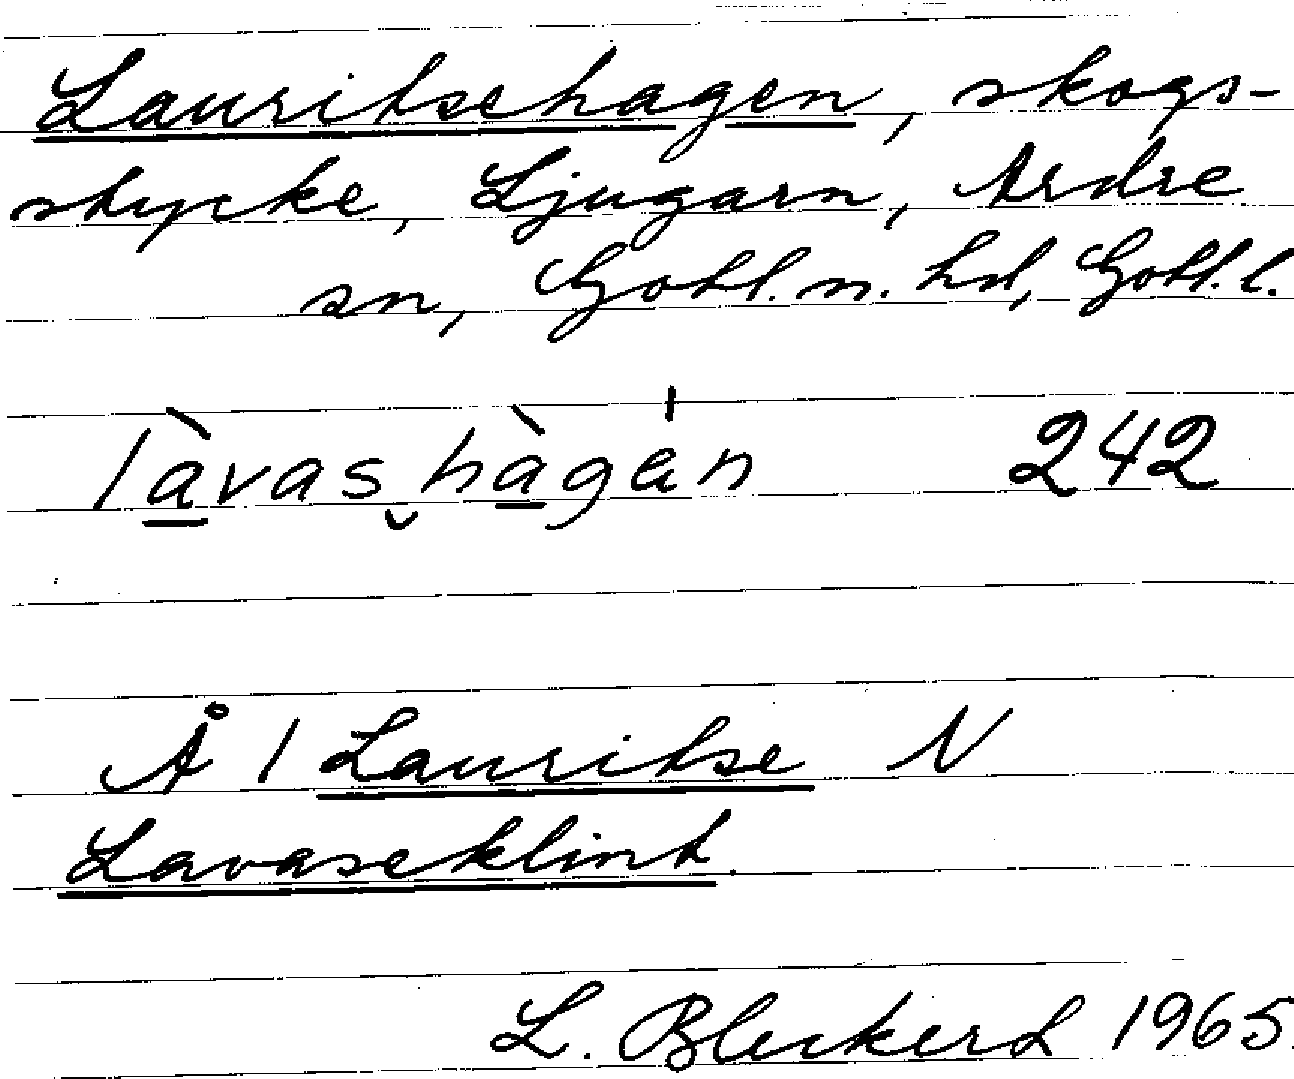 Lauritsehagen, skogs-
stycke, Ljugarn, Ardre
sn, Gotl. n. hd, Gotl. l.
làvas̬hàgan 242
Å 1 Lauritse N
Lavaseklint.
L. Bleckert 1965.